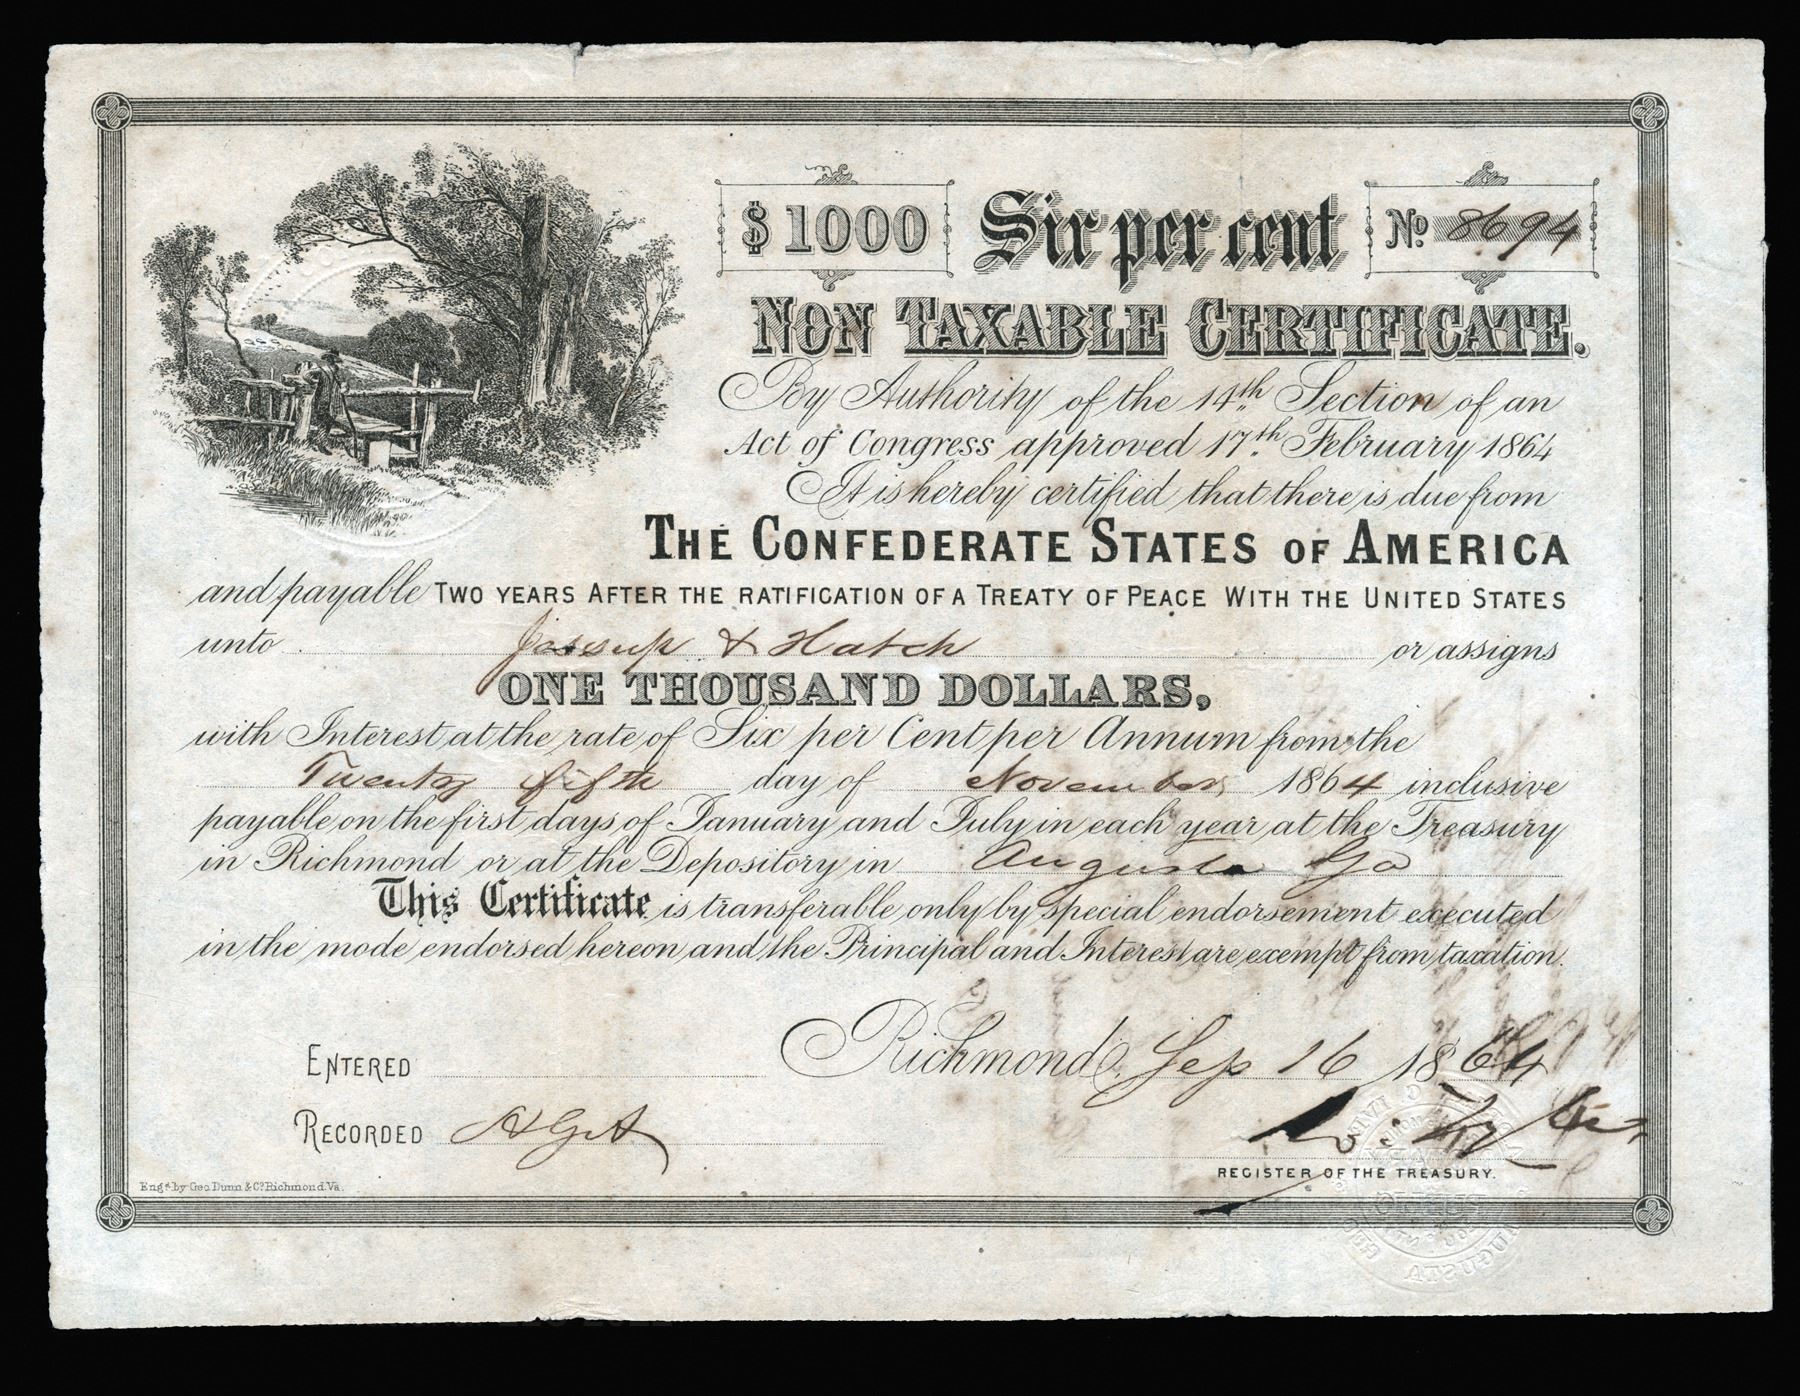 $1000 Six per cent No 8694
NON TAXABLE CERTIFICATE.
By Authority of the 14th Section of an
Act of Congress approved 17th February 1864
It is hereby certified that there is due from
THE CONFEDERATE STATES OF AMERICA
and payable TWO YEARS AFTER THE RATIFICATION OF A TREATY OF PEACE WITH THE UNITED STATES
unto Jessup & Hatch or assigns
ONE THOUSAND DOLLARS,
with Interest at the rate of Six per Cent per Annum from the
Twenty fifth day of November 1864 inclusive
payable on the first days of January and July in each year at the Treasury
in Richmond or at the Depository in Augusta Ga
This Certificate is transferable only by special endorsement executed
in the mode endorsed hereon and the Principal and Interest are exempt from taxation.
Richmond Sep 16 1864
ENTERED
RECORDED
REGISTER OF THE TREASURY.
Engd by Geo Dunn & Co Richmond Va.